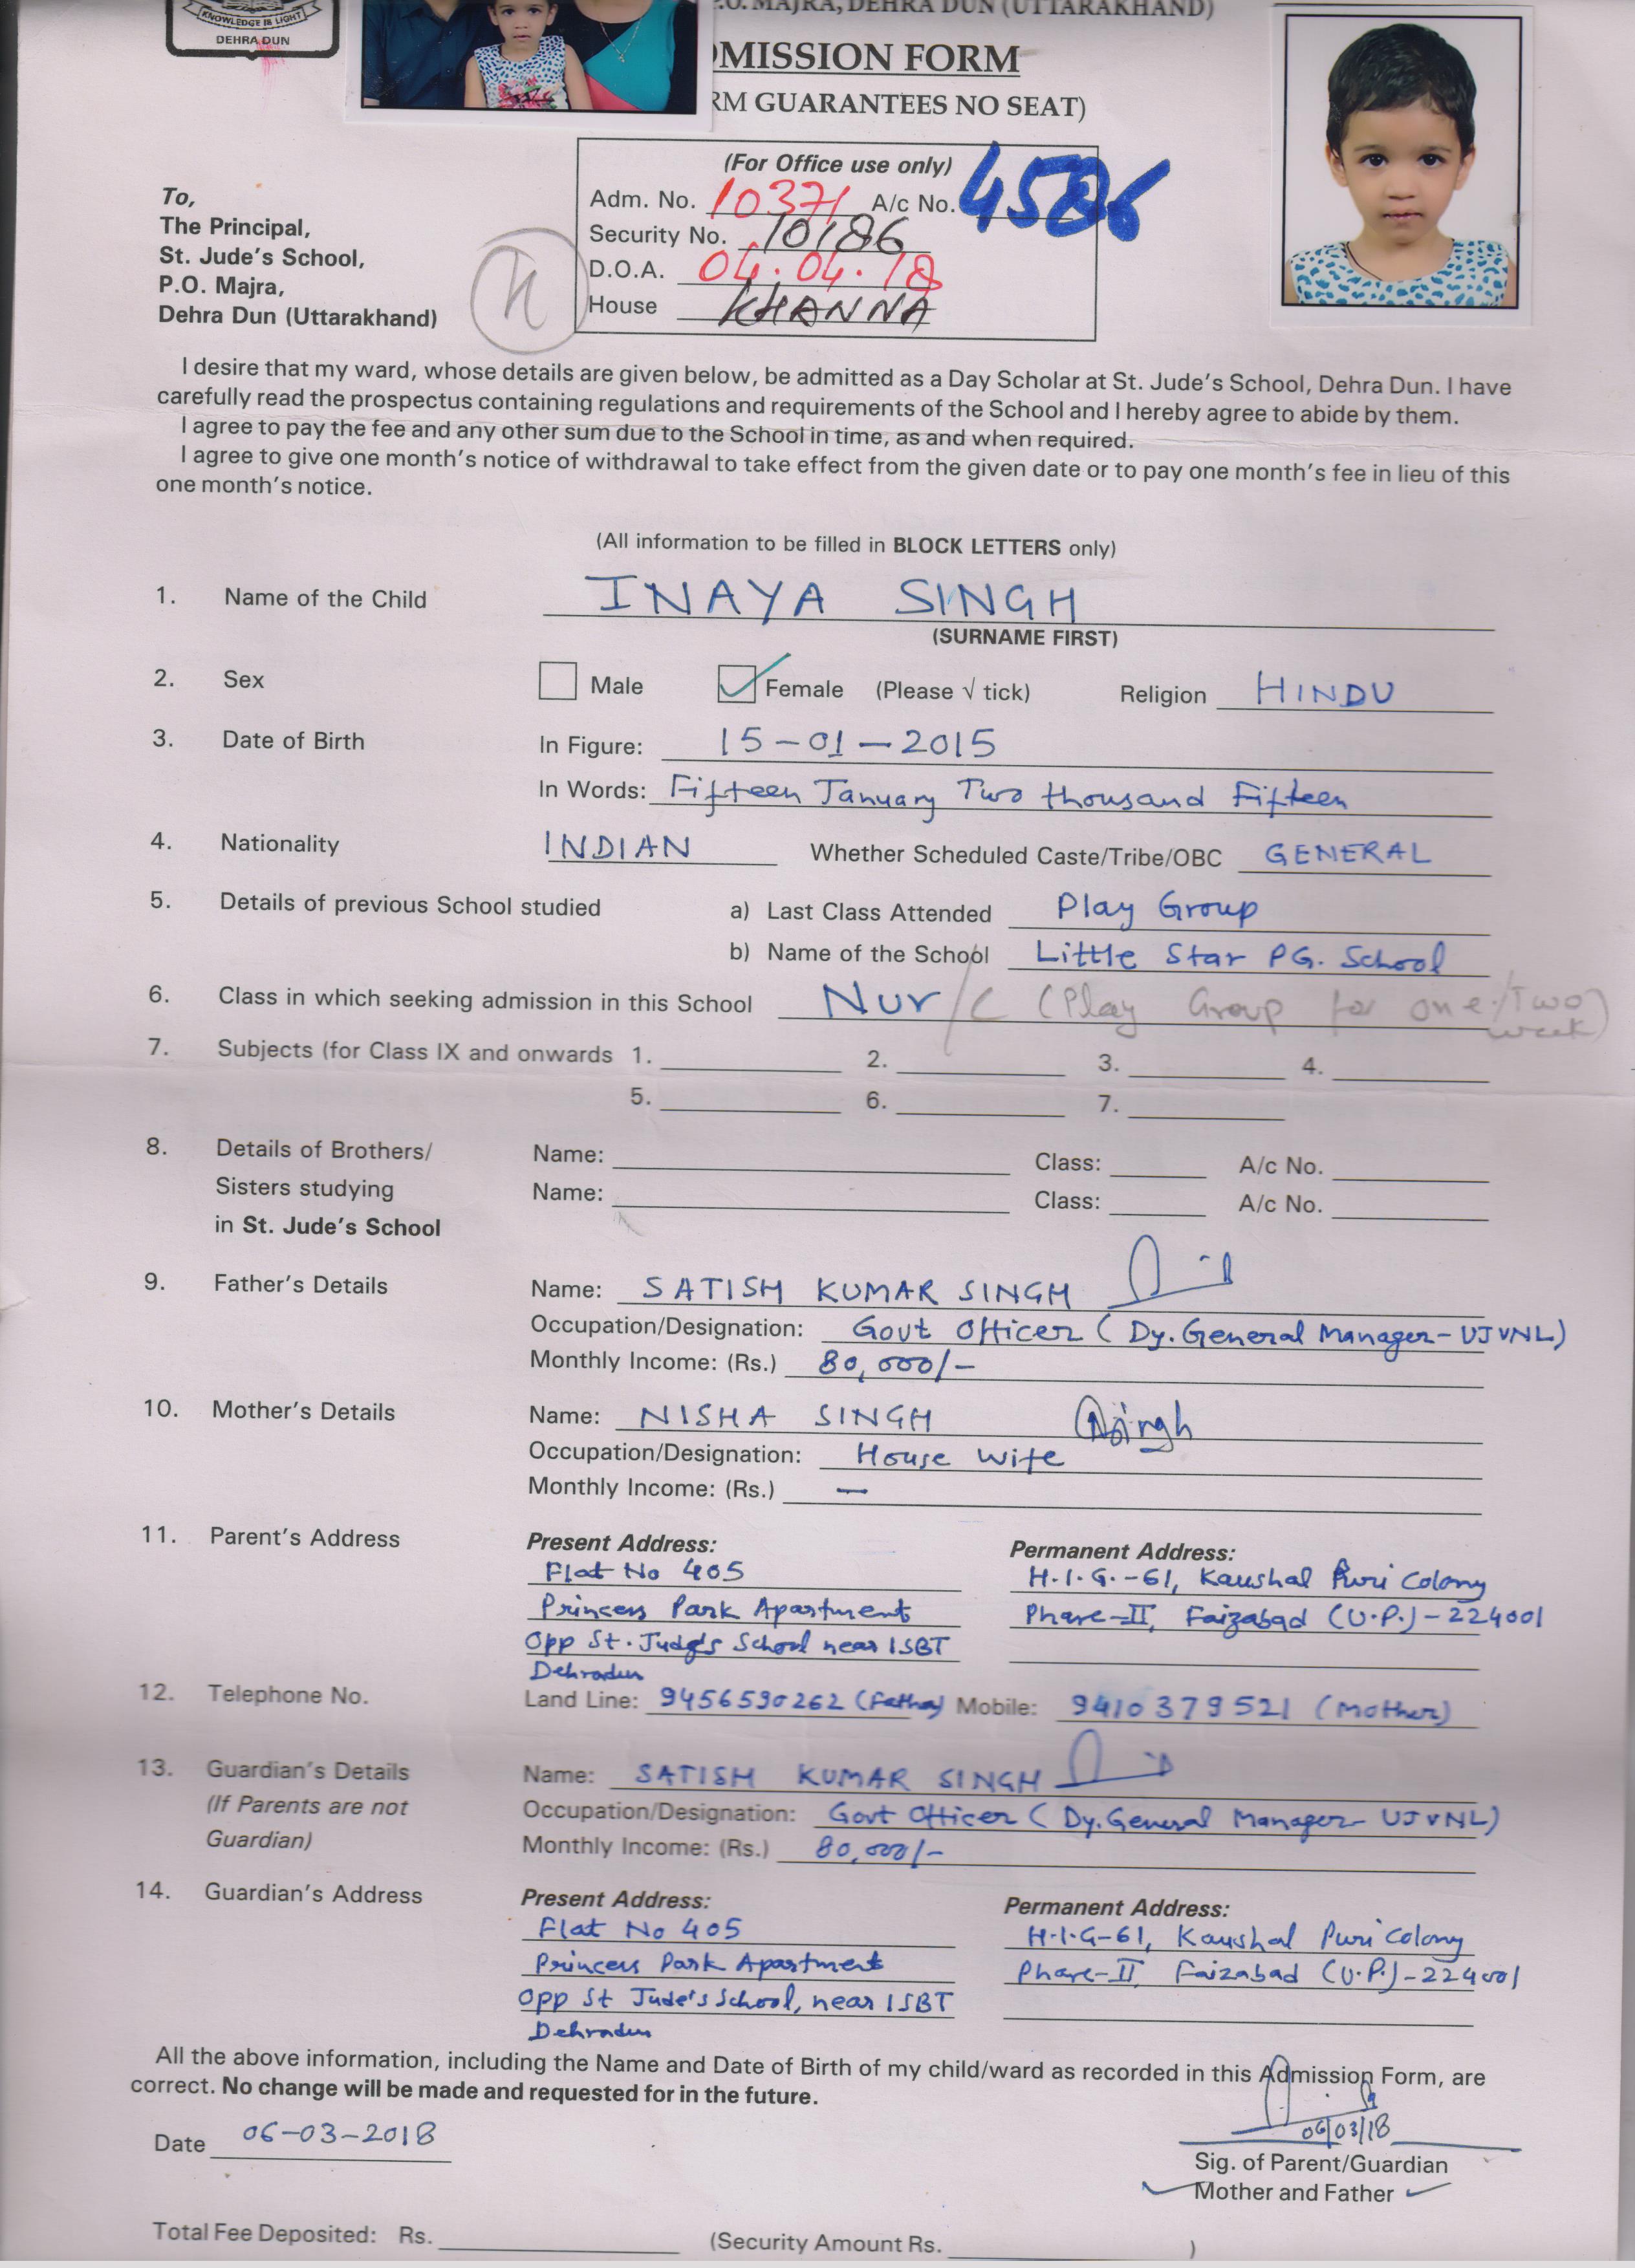 KNOWLEDGE IS LIGHT
DEHRA DUN
P.O. MAJRA, DEHRA DUN (UTTARAKHAND)
MISSION FORM
RM GUARANTEES NO SEAT)
(For Office use only)
Adm. No. 10371 A/c No. 4586
Security No. 10186
D.O.A. 04.04.18
House KHANNA
To,
The Principal,
St. Jude's School,
P.O. Majra,
Dehra Dun (Uttarakhand)
N
I desire that my ward, whose details are given below, be admitted as a Day Scholar at St. Jude's School, Dehra Dun. I have
carefully read the prospectus containing regulations and requirements of the School and I hereby agree to abide by them.
I agree to pay the fee and any other sum due to the School in time, as and when required.
I agree to give one month's notice of withdrawal to take effect from the given date or to pay one month's fee in lieu of this
one month's notice.
(All information to be filled in BLOCK LETTERS only)
1. Name of the Child INAYA SINGH
(SURNAME FIRST)
2. Sex Male Female (Please √ tick) Religion HINDU
3. Date of Birth In Figure: 15-01-2015
In Words: Fifteen January Two thousand Fifteen
4. Nationality INDIAN Whether Scheduled Caste/Tribe/OBC GENERAL
5. Details of previous School studied a) Last Class Attended Play Group
b) Name of the School Little Star PG. School
6. Class in which seeking admission in this School Nur/C (Play Group for one/Two
week)
7. Subjects (for Class IX and onwards 1. 2. 3. 4.
5. 6. 7.
8. Details of Brothers/ Name: Class: A/c No.
Sisters studying Name: Class: A/c No.
in St. Jude's School
9. Father's Details Name: SATISH KUMAR SINGH
Occupation/Designation: Govt Officer (Dy. General Manager-UJVNL)
Monthly Income: (Rs.) 80,000/-
10. Mother's Details Name: NISHA SINGH NSingh
Occupation/Designation: House Wife
Monthly Income: (Rs.) —
11. Parent's Address Present Address: Permanent Address:
Flat No 405 H.I.G.-61, Kaushal Puri Colony
Princess Park Apartment Phase-II, Faizabad (U.P.)-224001
Opp St. Jude's School near ISBT
Dehradun
12. Telephone No. Land Line: 9456590262 (Father) Mobile: 9410379521 (Mother)
13. Guardian's Details Name: SATISH KUMAR SINGH
(If Parents are not Occupation/Designation: Govt Officer (Dy. General Manager-UJVNL)
Guardian) Monthly Income: (Rs.) 80,000/-
14. Guardian's Address Present Address: Permanent Address:
Flat No 405 H.I.G-61, Kaushal Puri Colony
Princess Park Apartment Phase-II Faizabad (U.P.)-224001
Opp St Jude's School, near ISBT
Dehradun
All the above information, including the Name and Date of Birth of my child/ward as recorded in this Admission Form, are
correct. No change will be made and requested for in the future.
Date 06-03-2018
06/03/18
Sig. of Parent/Guardian
Mother and Father
Total Fee Deposited: Rs. (Security Amount Rs. )